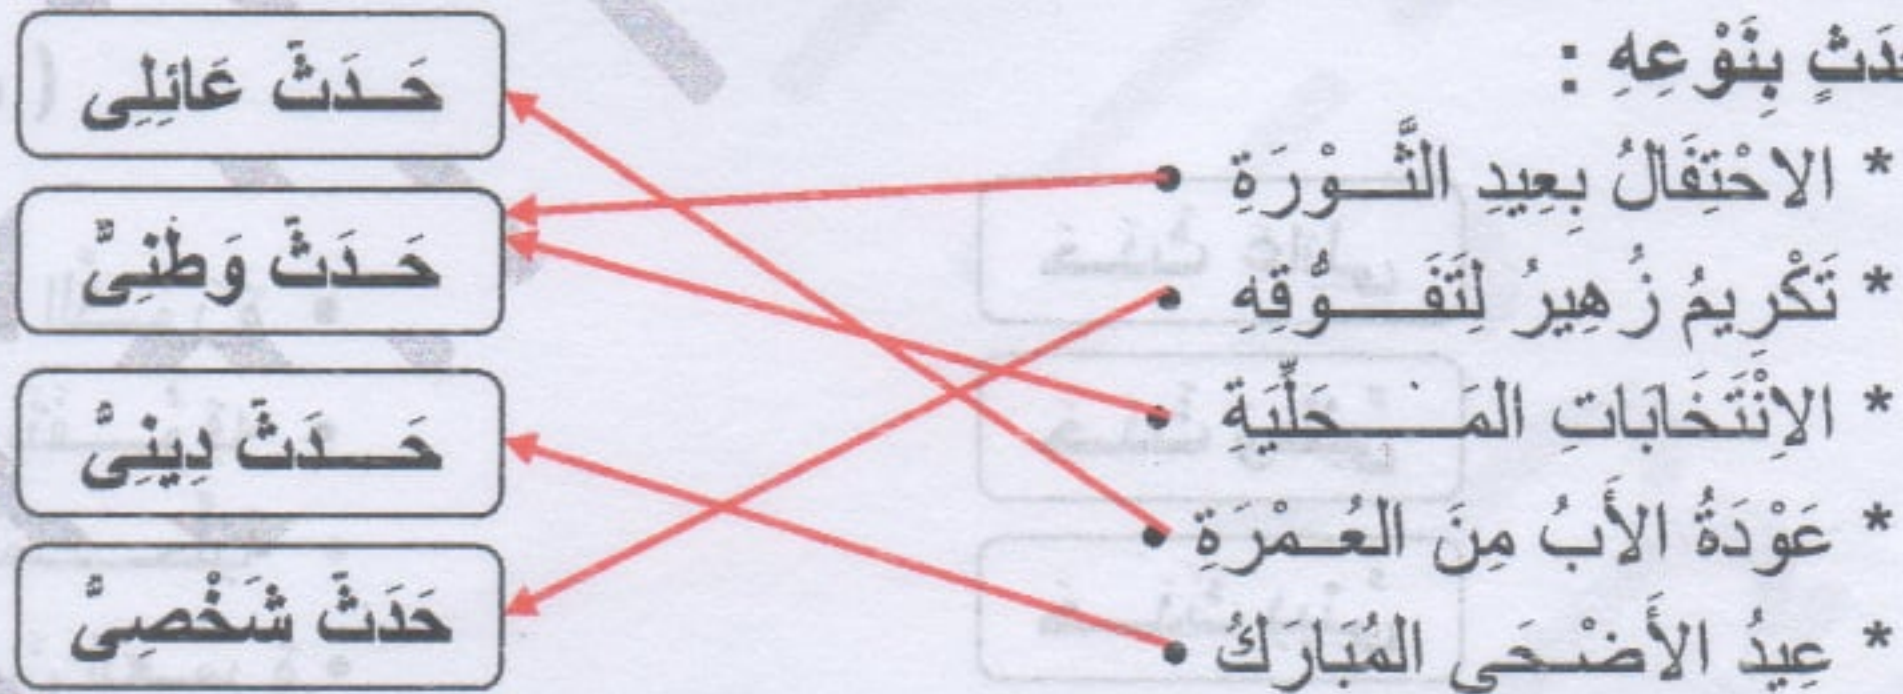 حَدَثٍ بِنَوْعِهِ :
* الاحْتِفَالُ بِعِيدِ الثَّوْرَةِ
* تَكْرِيمُ زُهِيرُ لِتَفَوُّقِهِ
* الاِنْتَخَابَاتِ المَحَلِّيَةِ
* عَوْدَةُ الأَبُ مِنَ العُمْرَةِ
* عِيدُ الأَضْحَى المُبَارَكُ
حَدَثٌ عَائِلِى
حَدَثٌ وَطَنِىٌّ
حَدَثٌ دِينِىٌّ
حَدَثٌ شَخْصِىٌّ